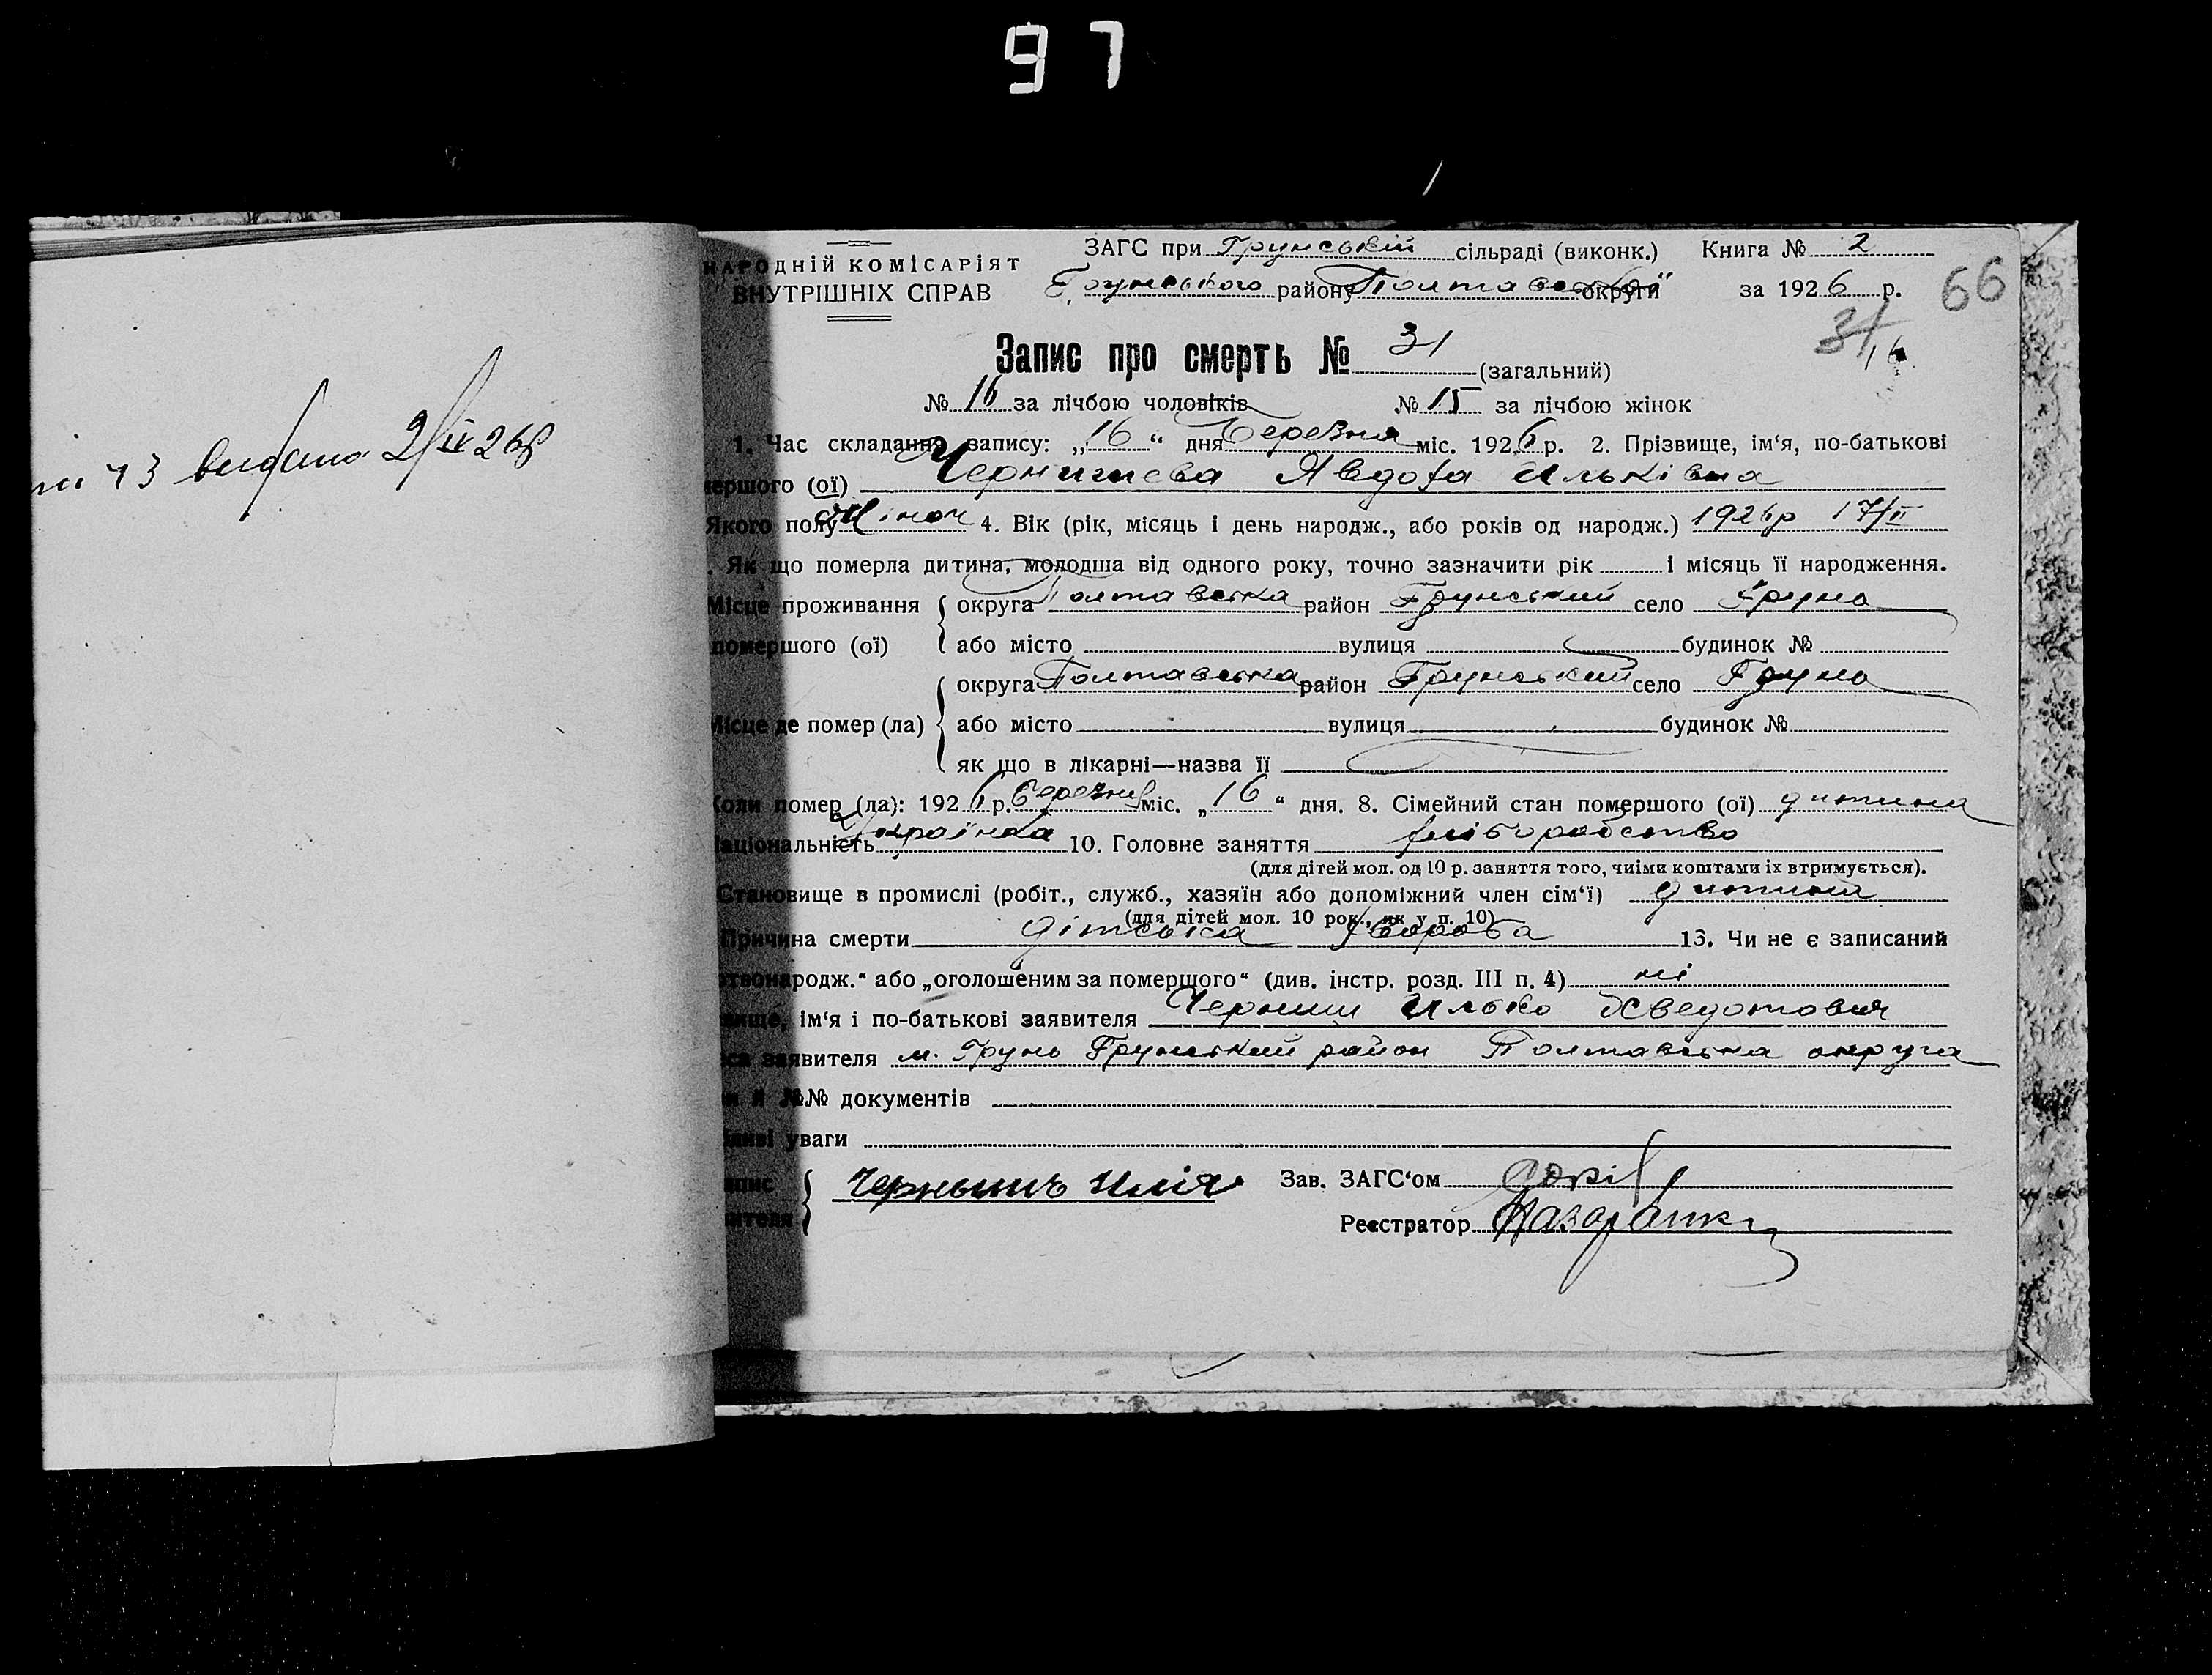 97
43 видано 2/IV 26р
НАРОДНІЙ КОМІСАРІЯТ
ВНУТРІШНІХ СПРАВ
ЗАГС при Грунській сільраді (виконк.) Книга № 2
Грунського району Полтавської округи за 1926 р.
66
31
16
Запис про смерть № 31 (загальний)
№ 16 за лічбою чоловіків № 15 за лічбою жінок
1. Час складання запису: „16“ дня березня міс. 1926 р. 2. Прізвище, ім‘я, по-батькові
мершого (ої) Чернишева Явдоха Ильківна
Якого полу жіноч 4. Вік (рік, місяць і день народж., або років од народж.) 1926р 17/II
. Як що померла дитина, молодша від одного року, точно зазначити рік і місяць її народження.
Місце проживання округа Полтавська район Грунський село Груно
помершого (ої) або місто вулиця будинок №
округа Полтавська район Грунський село Груно
Місце де помер (ла) або місто вулиця будинок №
як що в лікарні—назва її
Коли помер (ла): 1926 р. березня міс. „16“ дня. 8. Сімейний стан помершого (ої) дитина
Національність Українка 10. Головне заняття хліборобство
(для дітей мол. од 10 р. заняття того, чиїми коштами їх втримується).
Становище в промислі (робіт., служб., хазяїн або допоміжний член сім‘ї) дитина
(для дітей мол. 10 рок., як у п. 10)
Причина смерти дітська хвороба 13. Чи не є записаний
твонародж.“ або „оголошеним за помершого“ (див. інстр. розд. III п. 4) ні
вище, ім‘я і по-батькові заявителя Черниш Илько Хведотович
са заявителя м. Грунь Грунський район Полтавська округа
й №№ документів
уваги
пис Чернышъ Илія Зав. ЗАГС‘ом
ителя Реєстратор